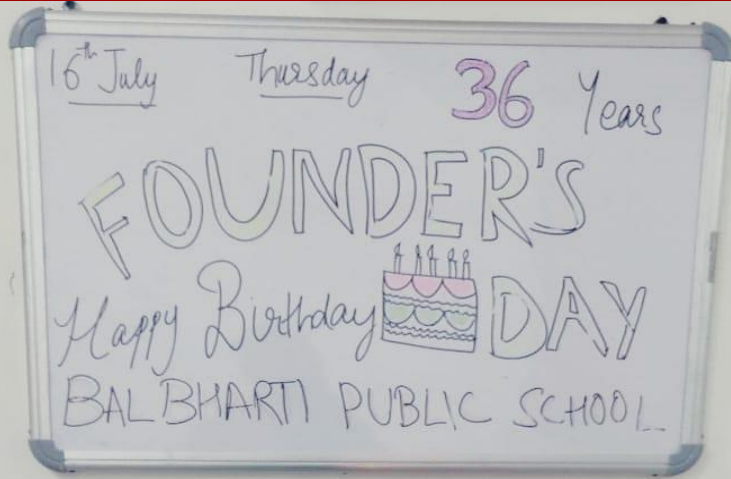 16th July Thursday 36 Years
FOUNDER'S
Happy Birthday DAY
BAL BHARTI PUBLIC SCHOOL